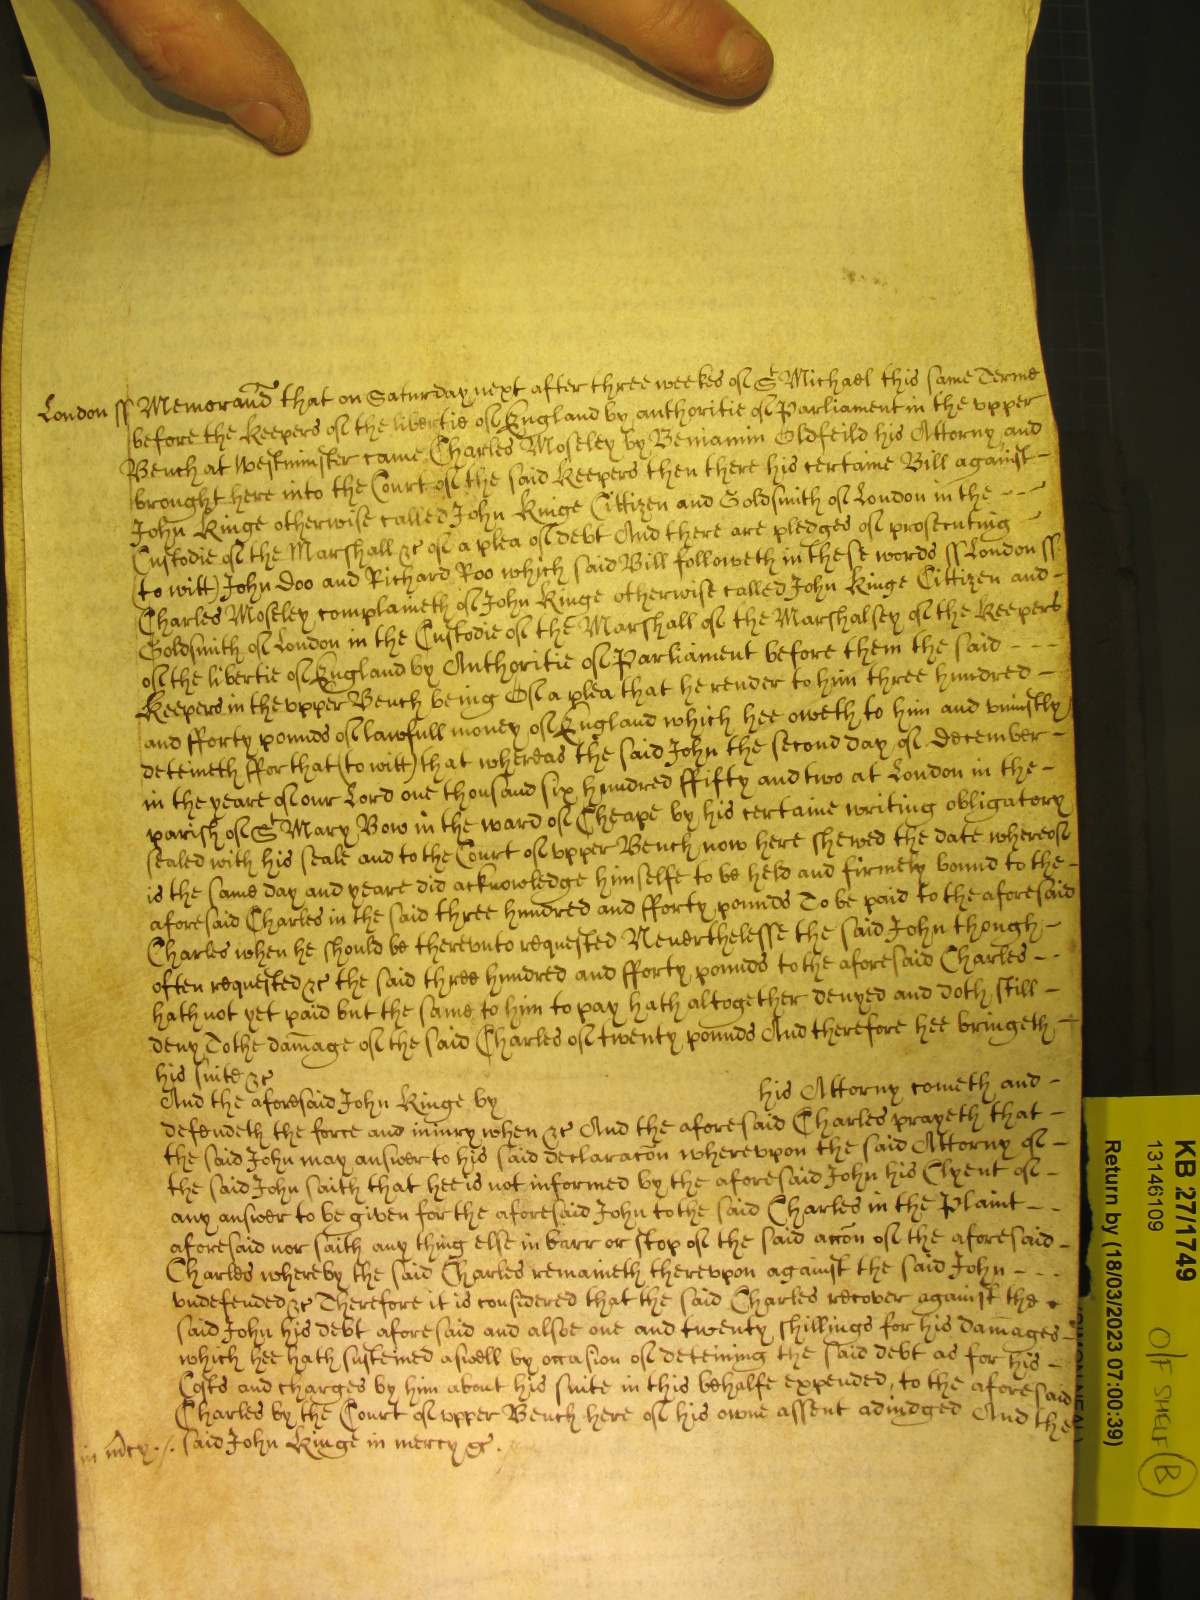 London ss Memorand that on Saturday next after three weekes of St Michael this same Terme
before the Keepers of the libertie of England by authoritie of Parliament in the vpper
Bench at Westminster came Charles Moseley by Beniamin Oldfeild his Attorny and
brought here into the Court of the said Keepers then there his certaine Bill against -
John Kinge otherwise called John Kinge Cittizen and Goldsmith of London in the - - -
Custodie of the Marshall &c of a plea of debt And there are pledges of prosecuting -
(to witt) John Doo and Richard Roo which said Bill followeth in these words ss London ss
Charles Moseley complaineth of John Kinge otherwise called John Kinge Cittizen and -
Goldsmith of London in the Custodie of the Marshall of the Marshalsey of the Keepers
of the libertie of England by Authoritie of Parliament before them the said - - -
Keepers in the vpper Bench being Of a plea that he render to him three hundred -
and fforty pounds of lawfull money of England which hee oweth to him and vniustly
deteineth ffor that (to witt) that whereas the said John the second day of December -
in the yeare of our Lord one thousand six hundred ffifty and two at London in the -
parish of St Mary Bow in the ward of Cheape by his certaine writing obligatory
sealed with his seale and to the Court of vpper Bench now here shewed the date whereof
is the same day and yeare did acknowledge himselfe to be held and firmely bound to the -
aforesaid Charles in the said three hundred and fforty pounds To be paid to the aforesaid
Charles when he should be therevnto requested Neuerthelesse the said John though -
often requested &c the said three hundred and fforty pounds to the aforesaid Charles - -
hath not yet paid but the same to him to pay hath altogether denyed and doth still -
deny To the damage of the said Charles of twenty pounds And therefore hee bringeth -
his suite &c
And the aforesaid John Kinge by his Attorny cometh and -
defendeth the force and iniury when &c And the aforesaid Charles prayeth that -
the said John may answer to his said declaracon wherevpon the said Attorny of -
the said John saith that hee is not informed by the aforesaid John his Clyent of -
any answer to be given for the aforesaid John to the said Charles in the Plaint - -
aforesaid nor saith any thing else in barr or stop of the said accon of the aforesaid -
Charles whereby the said Charles remaineth therevpon against the said John - - -
vndefended &c Therefore it is considered that the said Charles recover against the
said John his debt aforesaid and alsoe one and twenty shillings for his damages -
which hee hath susteined aswell by occasion of deteining the said debt as for his -
Costs and charges by him about his suite in this behalfe expended, to the aforesaid
Charles by the Court of vpper Bench here of his owne assent adiudged And the
in mcy ./. said John Kinge in mercy &c.
KB 27/1749
13146109
Return by (18/03/2023 07:00:39)
O/F SHELF B